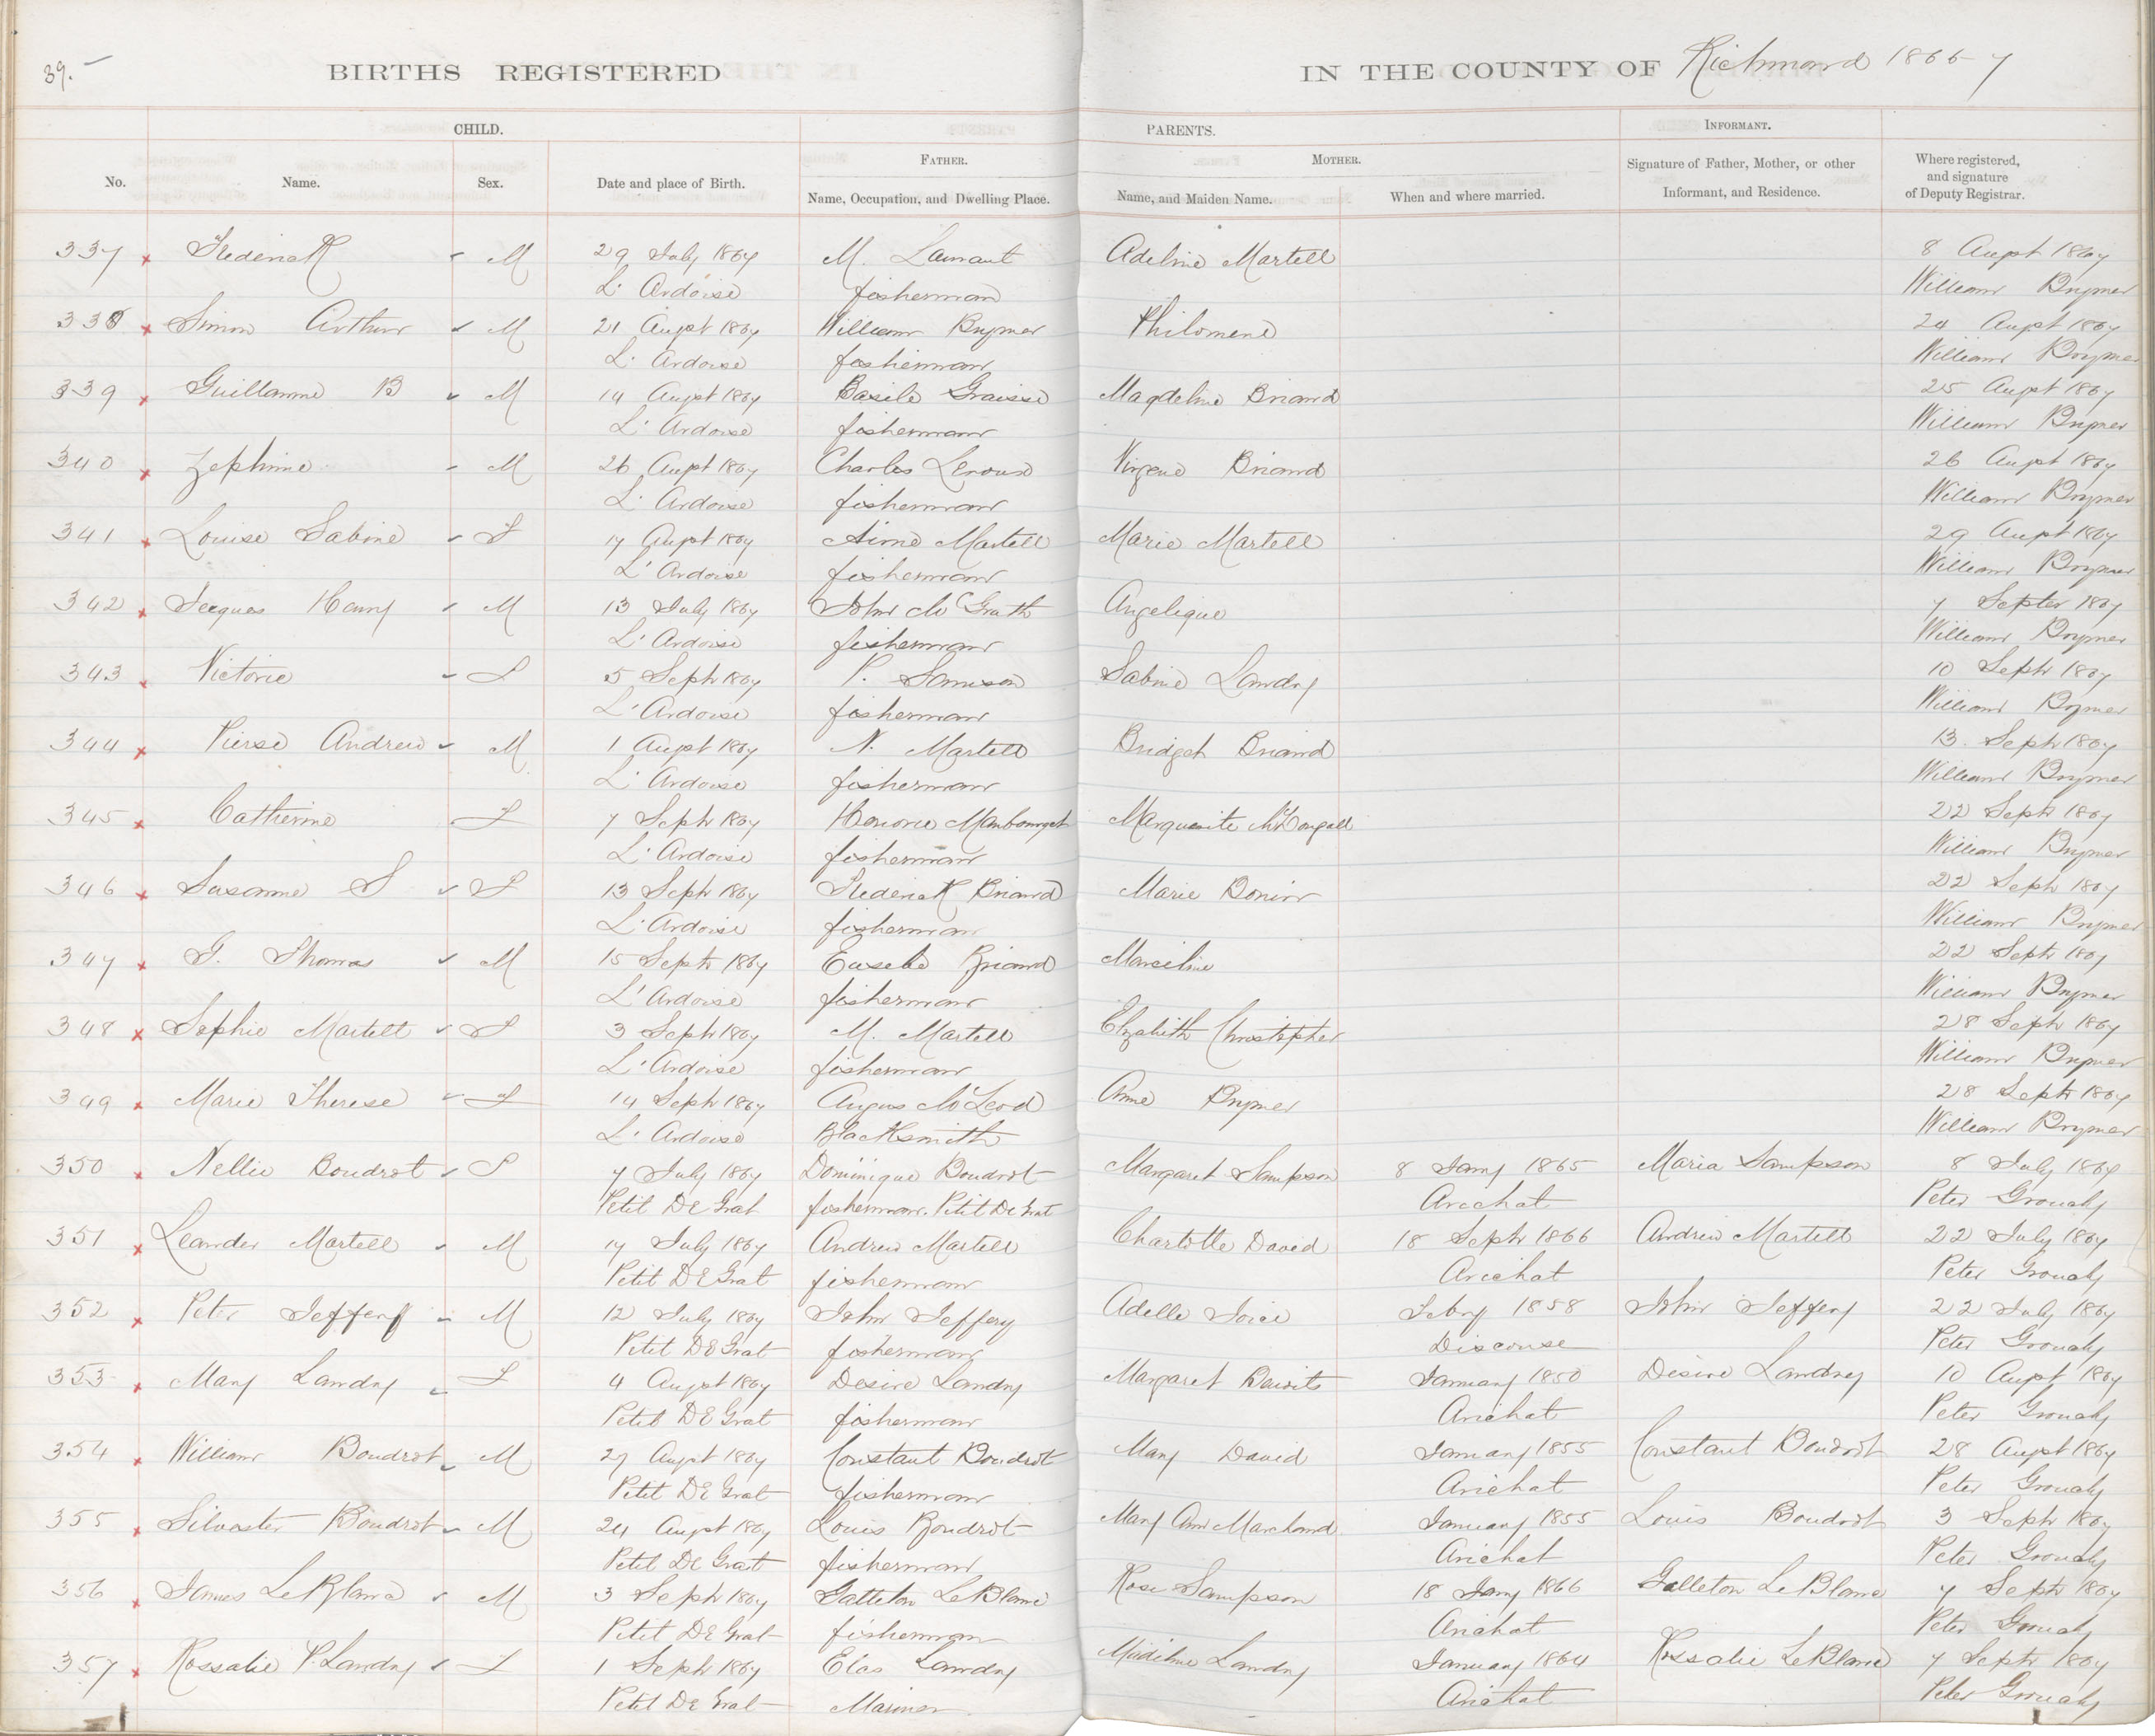 39.
BIRTHS REGISTERED IN THE COUNTY OF Richmond 1866-7
CHILD. PARENTS. INFORMANT.
FATHER. MOTHER.
No. Name. Sex. Date and place of Birth. Name, Occupation, and Dwelling Place. Name, and Maiden Name. When and where married. Signature of Father, Mother, or other Informant, and Residence. Where registered, and signature of Deputy Registrar.
337 Frederick M 29 July 1867 M. Adeline Martell 8 Augst 1867
L'Ardoise fisherman William Brymer
338 Simon Arthur M 21 Augst 1867 William Brymer Philomene 24 Augst 1867
L'Ardoise fisherman William Brymer
339 Guillaume B M 14 Augst 1867 Basile Magdeline Briand 25 Augst 1867
L'Ardoise fisherman William Brymer
340 Zephirine M 26 Augst 1867 Charles Briand 26 Augst 1867
L'Ardoise fisherman William Brymer
341 Louise Sabine F 17 Augst 1867 Aimé Martell Marie Martell 29 Augst 1867
L'Ardoise fisherman William Brymer
342 Jacques Harry M 13 July 1867 John McGrath Angelique 7 Septer 1867
L'Ardoise fisherman William Brymer
343 Victorie F 5 Septr 1867 P. Samson Sabine Landry 10 Septr 1867
L'Ardoise fisherman William Brymer
344 Pierse Andrew M 1 Augst 1867 N. Martell Bridget Briand 13 Septr 1867
L'Ardoise fisherman William Brymer
345 Catherine F 7 Septr 1867 Honorie Marguerite McDougall 22 Septr 1867
L'Ardoise fisherman William Brymer
346 Susanne S F 13 Septr 1867 Frederick Briand Marie 22 Septr 1867
L'Ardoise fisherman William Brymer
347 G. Thomas M 15 Septr 1867 Eusebe Briand Marceline 22 Septr 1867
L'Ardoise fisherman William Brymer
348 Sophie Martell F 3 Septr 1867 M. Martell Elizabeth Christopher 28 Septr 1867
L'Ardoise fisherman William Brymer
349 Marie Therese F 14 Septr 1867 Angus McLeod Anne Brymer 28 Septr 1867
L'Ardoise Blacksmith William Brymer
350 Nellie Boudrot F 7 July 1867 Dominique Boudrot Margaret Sampson 8 Jany 1865 Maria Sampson 8 July 1867
Petit De Grat fisherman. Petit De Grat Arichat Peter Grouchy
351 Leander Martell M 17 July 1867 Andrew Martell Charlotte David 18 Septr 1866 Andrew Martell 22 July 1867
Petit De Grat fisherman Arichat Peter Grouchy
352 Peter Jeffery M 12 July 1867 John Jeffery Adelle Joice Febry 1858 John Jeffery 22 July 1867
Petit De Grat fisherman Discouse Peter Grouchy
353 Mary Landry F 4 Augst 1867 Desire Landry Margaret January 1850 Desire Landry 10 Augst 1867
Petit De Grat fisherman Arichat Peter Grouchy
354 William Boudrot M 27 Augst 1867 Constant Boudrot Mary David January 1855 Constant Boudrot 28 Augst 1867
Petit De Grat fisherman Arichat Peter Grouchy
355 Silvester Boudrot M 24 Augst 1867 Louis Boudrot Mary Ann Marchand January 1855 Louis Boudrot 3 Septr 1867
Petit De Grat fisherman Arichat Peter Grouchy
356 James LeBlanc M 3 Septr 1867 Galleton LeBlanc Rose Sampson 18 Jany 1866 Galleton LeBlanc 7 Septr 1867
Petit De Grat fisherman Arichat Peter Grouchy
357 Rossalie P. Landry F 1 Septr 1867 Elas Landry Landry January 1864 Rossalie LeBlanc 7 Septr 1867
Petit De Grat Mariner Arichat Peter Grouchy